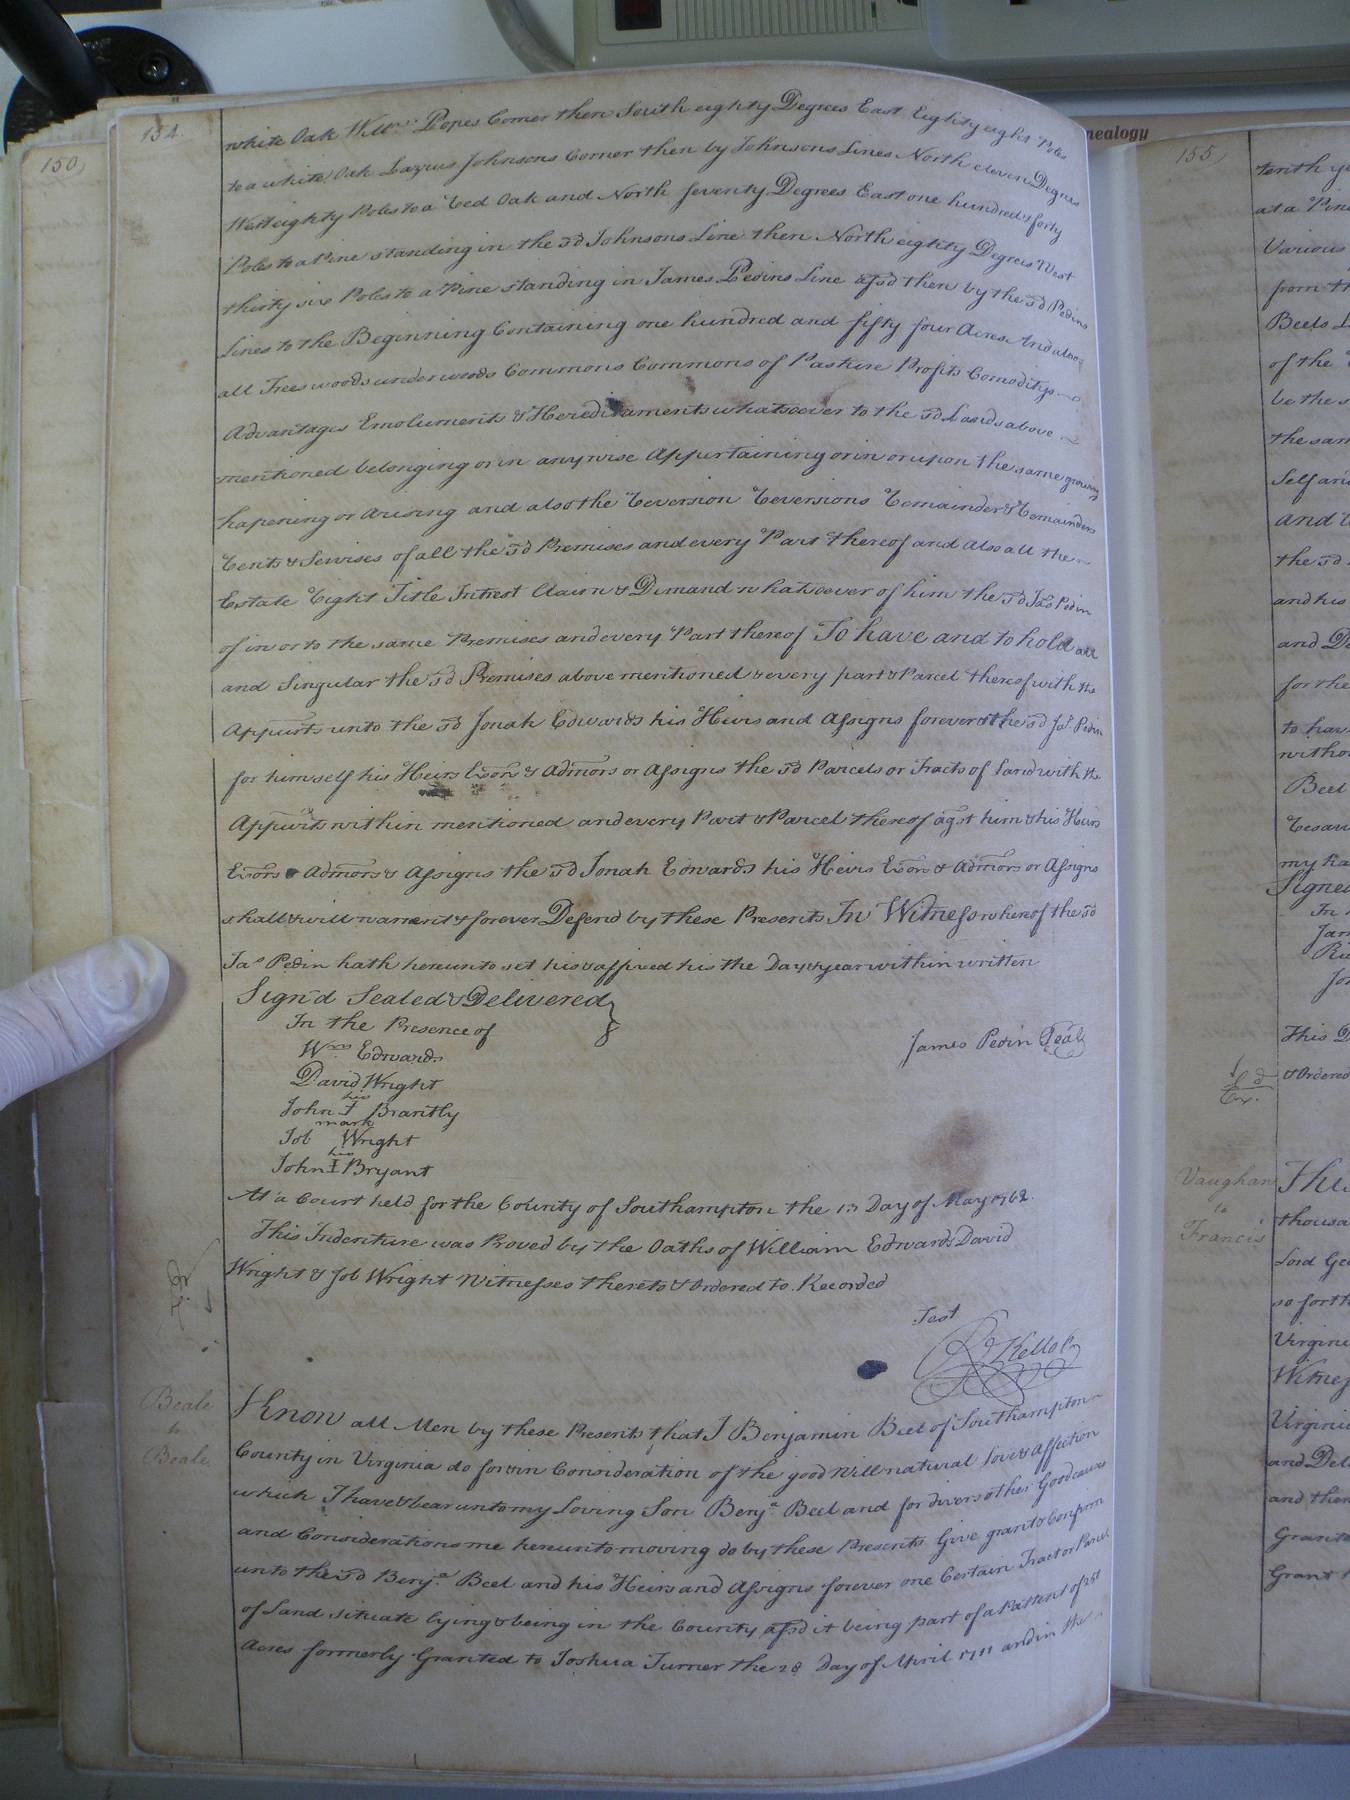 nealogy
150
154.
white Oak Willm. Popes Corner then South eighty Degrees East Eighty eight Poles
to a white Oak Lazrus Johnsons Corner then by Johnsons Lines North eleven Degrees
West eighty Poles to a Red Oak and North Seventy Degrees East one hundred & forty
Poles to a Pine standing in the sd Johnsons Line then North eighty Degrees West
thirty six Poles to a Pine standing in James Pedins Line afsd then by the sd Pedins
Lines to the Beginning Containing one hundred and fifty four Acres And also
all Trees woods underwoods Commons Commons of Pasture Profits Comoditys
Advantages Emoluments & Hereditaments whatsoever to the sd Lands above
mentioned belonging or in any wise Appurtaining or in or upon the same growing
hapening or Arising and also the Reversion Reversions Remainder & Remainders
Rents & Servises of all the sd Premises and every Part thereof and also all the
Estate Right Title Intrest Claim & Demand whatsoever of him the sd Jas Pedin
of in or to the same Premises and every Part thereof To have and to hold all
and Singular the sd Premises above mentioned & every part & Parcel thereof with the
Appurts unto the sd Jonah Edwards his Heirs and Assigns forever & the sd Jas Pedin
for himself his Heirs Exors & Admors or Assigns the sd Parcels or Tracts of Land with the
Appurts within mentioned and every Part & Parcel thereof agst him & his Heirs
Exors & Admors & Assigns the sd Jonah Edwards his Heirs Exors & Admors or Assigns
shall & will warrent & forever Defend by these Presents In Witness whereof the sd
Jas Pedin hath hereunto set his & affixed his the Day & year within written
Sign'd Sealed & Delivered
In the Presence of
James Pedin Seal
Wm Edwards
David Wright
his
John I Brantly
mark
Job Wright
his
John I Bryant
At a Court held for the County of Southampton the 13 Day of May 1762.
This Indenture was Proved by the Oaths of William Edwards David
Wright & Job Wright Witnesses thereto & Ordered to Recorded
Test
Rd Kello
Beale
to
Beale
Know all Men by these Presents that I Benjamin Beel of Southampton
County in Virginia do for & in Consideration of the good Will natural love & Affection
which I have & bear unto my Loving Son Benja. Beel and for divers other Good causes
and Considerations me hereunto moving do by these Presents Give grant & Confirm
unto the sd Benja. Beel and his Heirs and Assigns forever one Certain Tract or Parcel
of Land situate lying & being in the County afsd it being part of a Pattent of 251
Acres formerly Granted to Joshua Turner the 28 Day of April 1711 and in the
155
tenth ye
at a Pine
Various
from th
Beels L
of the
be the s
the sam
Self an
and
the sd
and his
and De
for the
to hav
witho
Beel
my ha
Signed
In
Jam
Jo
This D
& Ordered
Ex.
Vaughan
to
Francis
This
thousa
Lord Ge
so forth
Virgini
Witnes
Virgini
and Del
and then
Grante
Grant